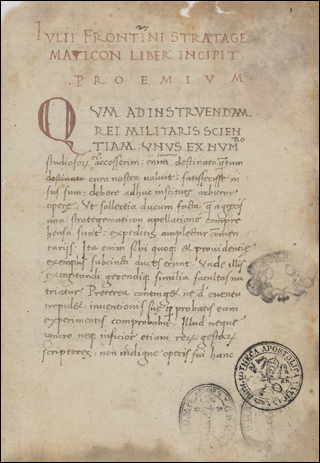 IVLII FRONTINI STRATAGE
MATICON LIBER INCIPIT
PROEMIVM
QVM AD INSTRVENDAM
REI MILITARIS SCIEN
TIAM VNVS EX NVM
ro
studiosorꝫ accesserim: enim destinato qꝫtum
destinato cura nostra valuit: satisfecisse ni
sus sum: debere adhuc institute arbitror
opere: Vt sollertia ducum facta
una strategematicon apellatione compre
hensa sunt: expeditis amplectar comen
tariis Ita enim sibi quoqꝫ et providentie
exemplis subcincti duces erunt Vnde illis
excogitandi gerendiqꝫ similia facultas nu
triatur Preterea ne d eventu
inventionis probatis eam
experimentis comprobabit. Illud neque
ignoro neqꝫ inficior etiam rerꝫ gestarꝫ
scriptores: non indigne operis sui hanc
BIBLIOTHECA APOSTOLICA VATICANA